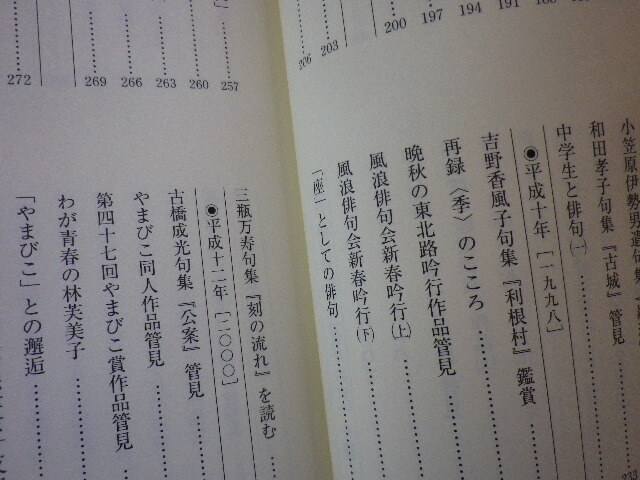 191
194
197
200
203
206
小笠原伊勢男遺句集
和田孝子句集『古城』管見
中学生と俳句(一)
◉平成十年〔一九九八〕
吉野香風子句集『利根村』鑑賞
再録〈季〉のこころ
晩秋の東北路吟行作品管見
風浪俳句会新春吟行(上)
風浪俳句会新春吟行(下)
「座」としての俳句
233
257
260
263
266
269
272
三瓶万寿句集『刻の流れ』を読む
◉平成十二年〔二〇〇〇〕
古橋成光句集『公案』管見
やまびこ同人作品管見
第四十七回やまびこ賞作品管見
わが青春の林芙美子
「やまびこ」との邂逅